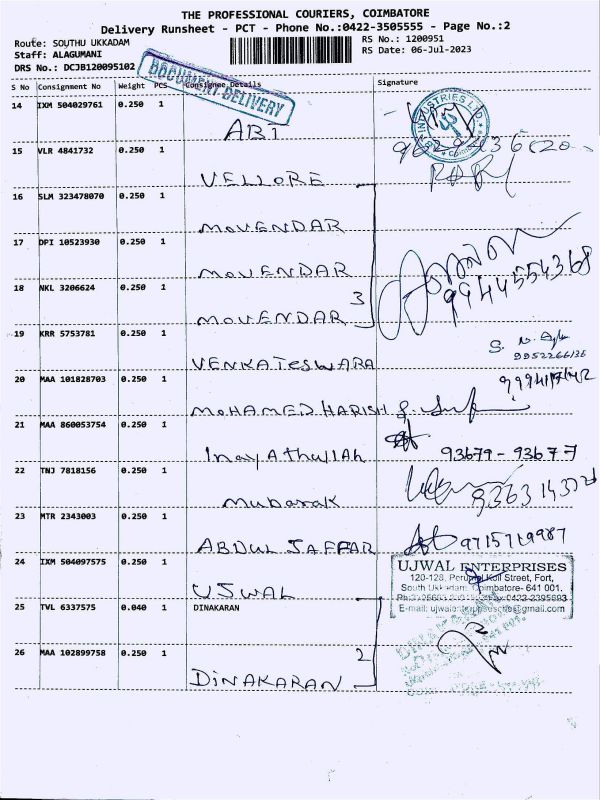 THE PROFESSIONAL COURIERS, COIMBATORE
Delivery Runsheet - PCT - Phone No.:0422-3505555 - Page No.:2
Route: SOUTHU UKKADAM
RS No.: 1200951
Staff: ALAGUMANI
RS Date: 06-Jul-2023
DRS No.: DCJB120095102
DOCUMENT DELIVERY
S No Consignment No Weight PCS Consignee Details Signature
14 IXM 504029761 0.250 1
ABI
INDUSTRIES LTD.
15 VLR 4841732 0.250 1
VELLORE
16 SLM 323478070 0.250 1
MOVENDAR
17 DPI 10523930 0.250 1
MOVENDAR
18 NKL 3206624 0.250 1
3
MOVENDAR
9944554368
19 KRR 5753781 0.250 1
VENKATESWARA
9952266136
20 MAA 101828703 0.250 1
MOHAMED HARISH
21 MAA 860053754 0.250 1
InayAthullAh
93679 - 93677
22 TNJ 7818156 0.250 1
mubarak
23 MTR 2343003 0.250 1
ABDUL JAFFAR
9715719987
24 IXM 504097575 0.250 1
USWAL
UJWAL ENTERPRISES
120-128, Perumal Koil Street, Fort,
South Ukkadam, Coimbatore- 641 001.
0422-2395693
E-mail: @gmail.com
25 TVL 6337575 0.040 1 DINAKARAN
26 MAA 102899758 0.250 1
2
DINAKARAN